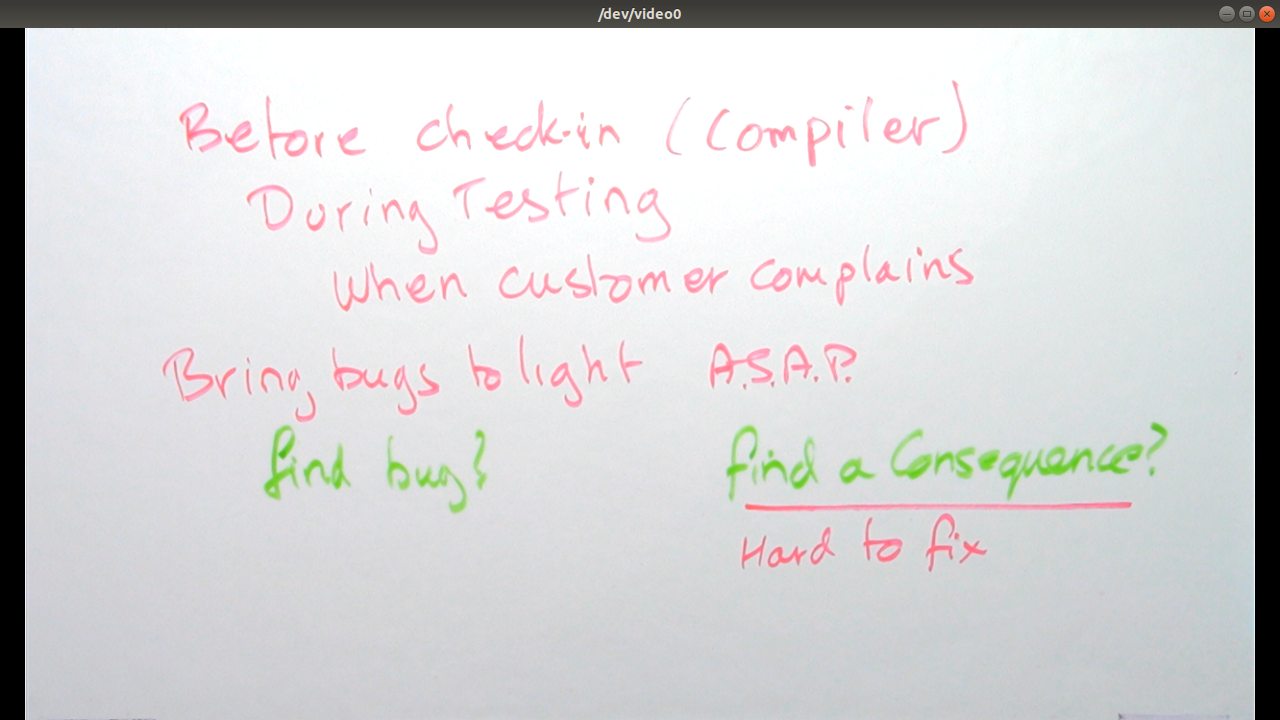 /dev/video0
Before check-in (Compiler)
During Testing
When customer complains
Bring bugs to light A.S.A.P.
find bug? find a Consequence?
Hard to fix